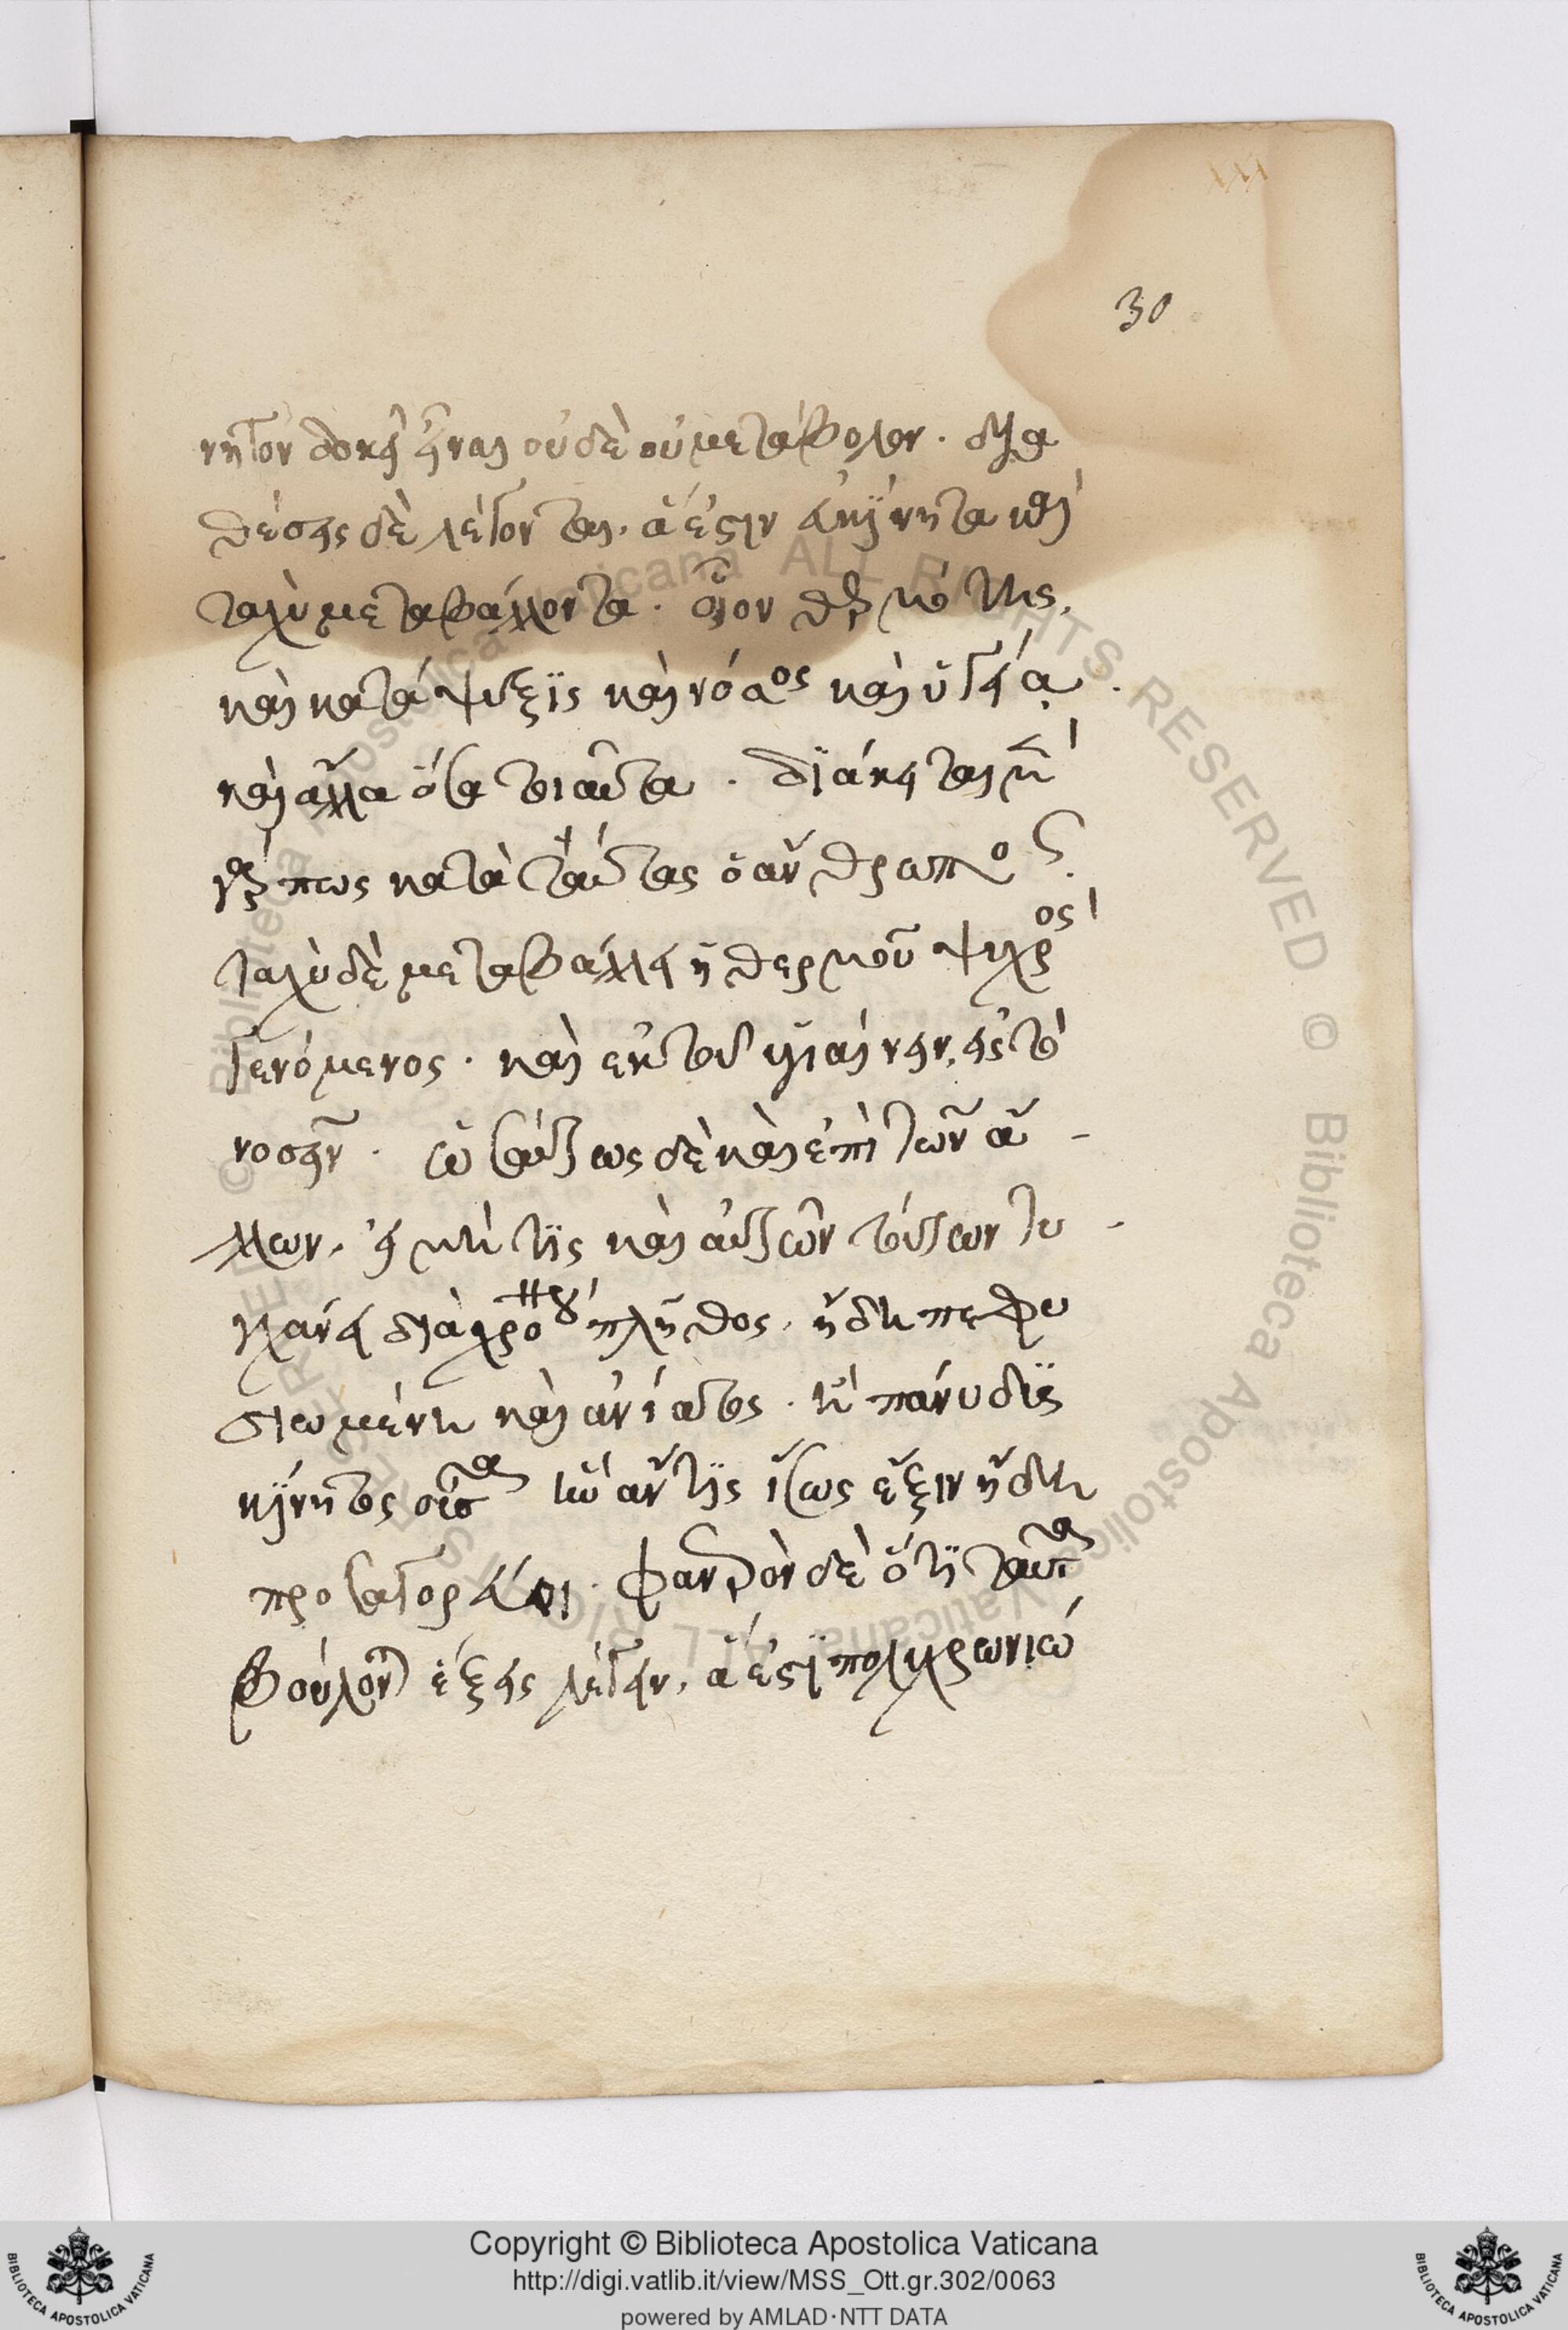 30
νητον δοκεῖ εἶναι οὐδὲ εὐμετάβολον. δια
θέσεις δὲ λέγονται, ἅ ἐστιν εὐκίνητα καὶ
ταχὺ μεταβάλλοντα. οἷον θερμότης,
καὶ κατάψυξις καὶ νόσος καὶ ὑγεία.
καὶ ἄλλα ὅσα τοιαῦτα. διάκειται μὲν
γάρ πως κατὰ ταύτας ὁ ἄνθρωπος.
ταχὺ δὲ μεταβάλλει ἐκ θερμοῦ ψυχρὸς
γενόμενος. καὶ ἐκ τοῦ ὑγιαίνειν, εἰς τὸ
νοσεῖν. ὡσαύτως δὲ καὶ ἐπὶ τῶν ἄ-
λλων, εἰ μή τις καὶ αὐτῶν τούτων τυ-
γχάνει διὰ χρόνου πλῆθος, ἤδη πεφυ
σιωμένη καὶ ἀνίατος. ἢ πάνυ δυς
κίνητος οὖσα ἣν ἄν τις ἴσως ἕξιν ἤδη
προσαγορεύοι. φανερὸν δὲ ὅτι ταῦτα
βούλονται ἕξεις λέγειν, ἅ ἐστι πολυχρωνιώ
Copyright © Biblioteca Apostolica Vaticana
http://digi.vatlib.it/view/MSS_Ott.gr.302/0063
powered by AMLAD·NTT DATA